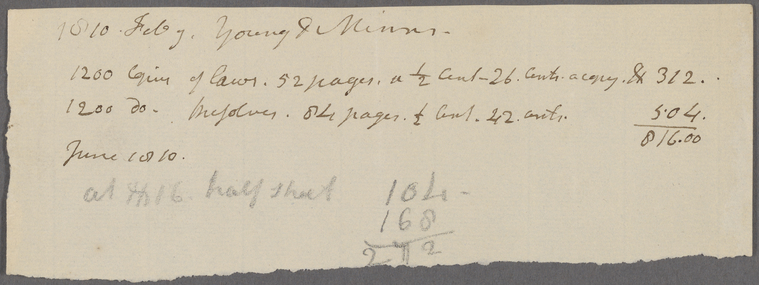 1810. Feby. Young & Minns.
1200 Copies of laws. 52 pages. a ½ Cent - 26. cents a copy. $ 312.
1200 Do. Resolves. 84 pages. ½ Cent. 42. cents. 504.
816.00
June 1810.
at $16. half sheet 104
168
272